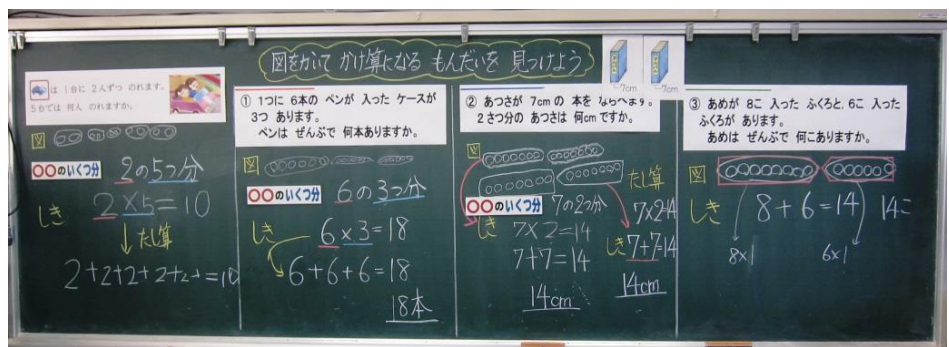 図をかいて かけ算になる もんだいを 見つけよう
は 1台に 2人ずつ のれます。
5台では 何人 のれますか。
図
○○のいくつ分
2の5つ分
しき
2×5=10
たし算
2+2+2+2+2=10
① 1つに 6本の ペンが 入った ケースが
3つ あります。
ペンは ぜんぶで 何本ありますか。
図
○○のいくつ分
6の3つ分
しき
6×3=18
6+6+6=18
18本
7cm
7cm
② あつさが 7cmの 本を ならべます。
2さつ分の あつさは 何cmですか。
図
○○のいくつ分
7の2つ分
しき
7×2=14
7+7=14
14cm
たし算
7×2=14
しき
7+7=14
14cm
③ あめが 8こ 入った ふくろと、6こ 入った
ふくろが あります。
あめは ぜんぶで 何こありますか。
図
しき
8+6=14
14=
8×1
6×1